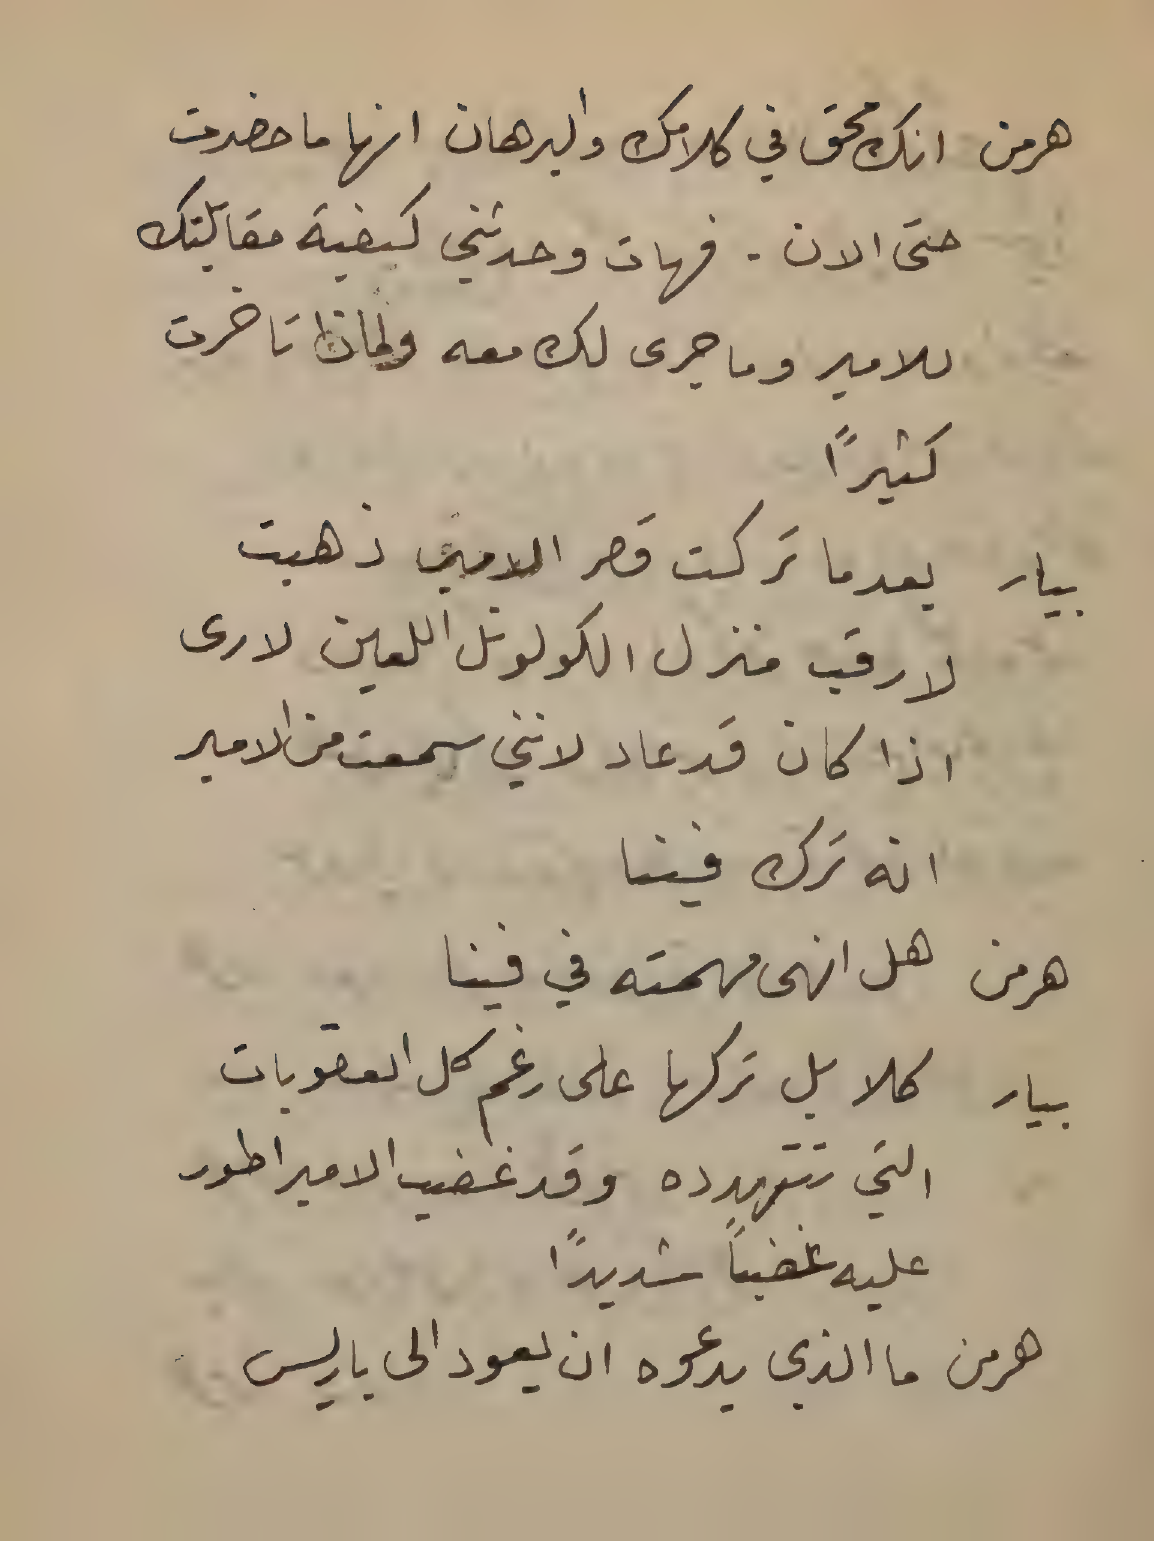 هرمن انك محق في كلامك والبرهان انها ما حضرت
حتى الان - فهات وحدثني كيفية مقابلتك
للامير وما جرى لك معه ولماذا تاخرت
كثيرًا
بيار بعدما تركت قصر الامير ذهبت
لارقب منزل الكولونل اللعين لارى
اذا كان قد عاد لانني سمعت من الامير
انه ترك فيينا
هرمن هل انهى مهمته في فينا
بيار كلا بل تركها على رغم كل العقوبات
التي تتهدده وقد غضب الامبراطور
عليه غضباً شديدًا
هرمن ما الذي يدعوه ان يعود الى باريس